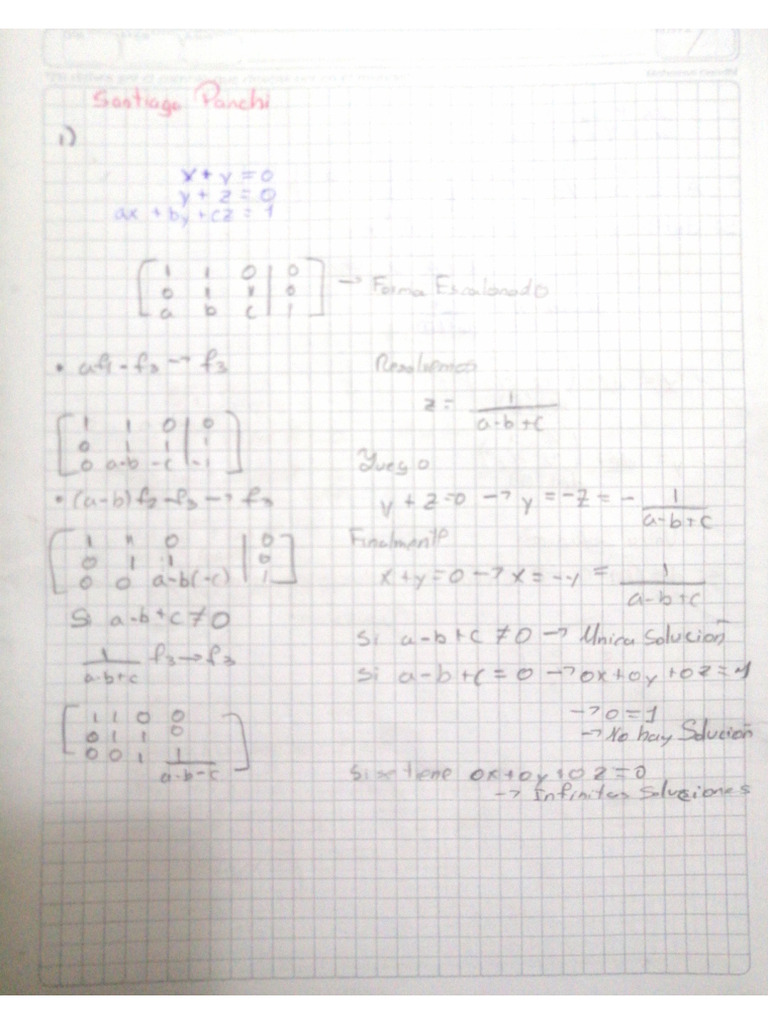 Santiago Panchi
1)
x + y = 0
y + z = 0
ax + by + cz = 1
[ 1 1 0 | 0 ]
[ 0 1 1 | 0 ] → Forma Escalonado
[ a b c | 1 ]
• af1 - f3 → f3
[ 1 1 0 | 0 ]
[ 0 1 1 | 1 ]
[ 0 a-b -c | -1 ]
• (a-b) f2 - f3 → f3
[ 1 1 0 | 0 ]
[ 0 1 1 | 0 ]
[ 0 0 a-b(-c) | 1 ]
Si a-b+c ≠ 0
1/(a-b+c) f3 → f3
[ 1 1 0 0 ]
[ 0 1 1 0 ]
[ 0 0 1 1/(a-b-c) ]
Resolvemos
z = 1/(a-b+c)
Luego
y + z = 0 → y = -z = - 1/(a-b+c)
Finalmente
x + y = 0 → x = -y = 1/(a-b+c)
Si a-b+c ≠ 0 → Unica Solución
Si a-b+c = 0 → 0x + 0y + 0z = 1
→ 0 = 1
→ No hay Solución
Si se tiene 0x + 0y + 0z = 0
→ Infinitas Soluciones